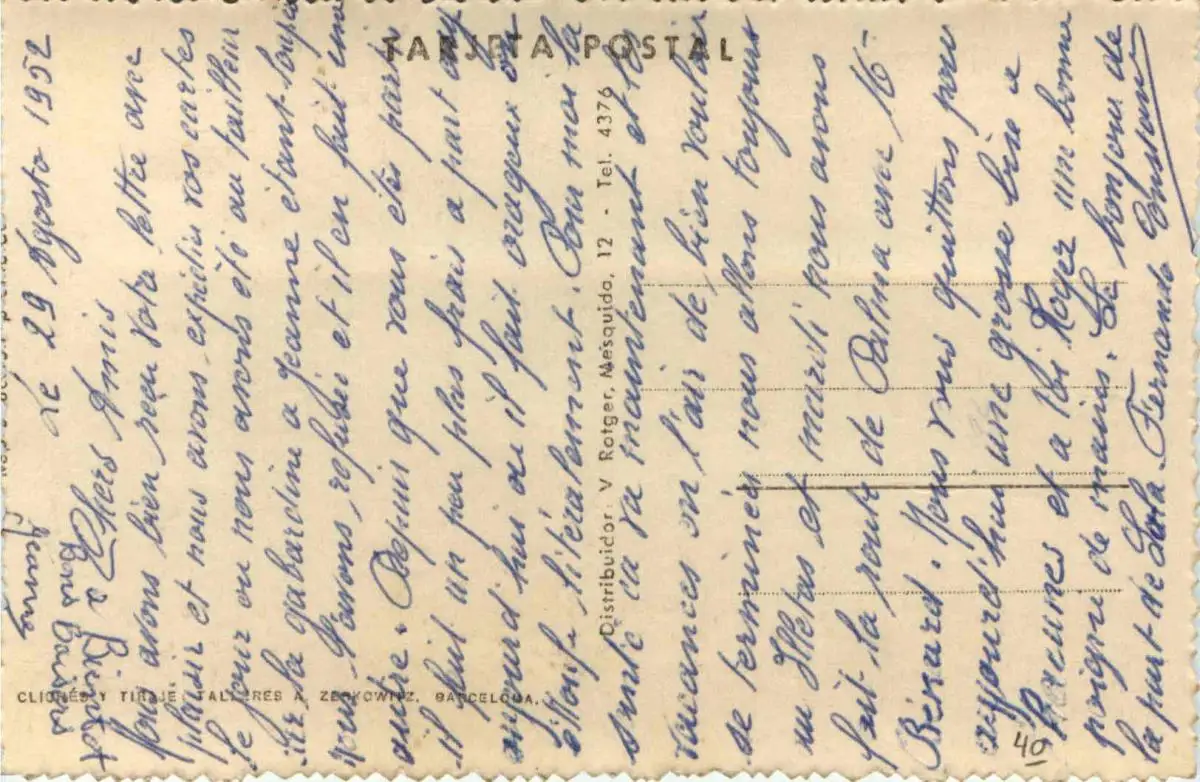 TARJETA POSTAL
Le 29 Agosto 1952
Chers Amis
Nous avons bien reçu votre lettre avec
plaisir et nous avons expédié vos cartes
le jour ou nous avons été au tailleur
la gabardine a Jeanne étant loupée
nous l'avons refusée et il en fait une
autre. Depuis que vous êtes parti
il fait un peu plus frais a part
aujourd'hui ou il fait orageux on
étouffe litéralement. Pour moi la
santé ca va maintenant et les
vacances on l'air de bien vouloir
se terminer nous allons toujours
au Illetas et mardi nous avons
fait la route de Palma avec
Bernard. Nous vous quittons pour
aujourd'hui une grosse bise a
et a toi Royez une bonne
poigne de mains. Le bonjour de
la part de Lola. Fernande Constant
a Bientot
Bons Baisers
Jeanne
Distribuidor: V Rotger, Mesquida, 12 - Tel. 4376
CLICHÉS Y TIRAJE: TALLERES A. ZERKOWITZ. BARCELONA.
40